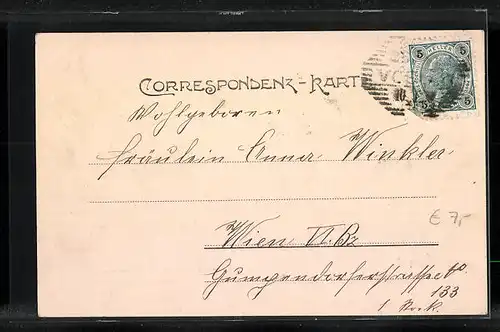 CORRESPONDENZ-KARTE
Wohlgeboren
Fräulein Anna Winkler
Wien VI. Bz
Gumpendorferstrasse No
133
1 Stock.
€ 7,-
5 HELLER 5
5 5